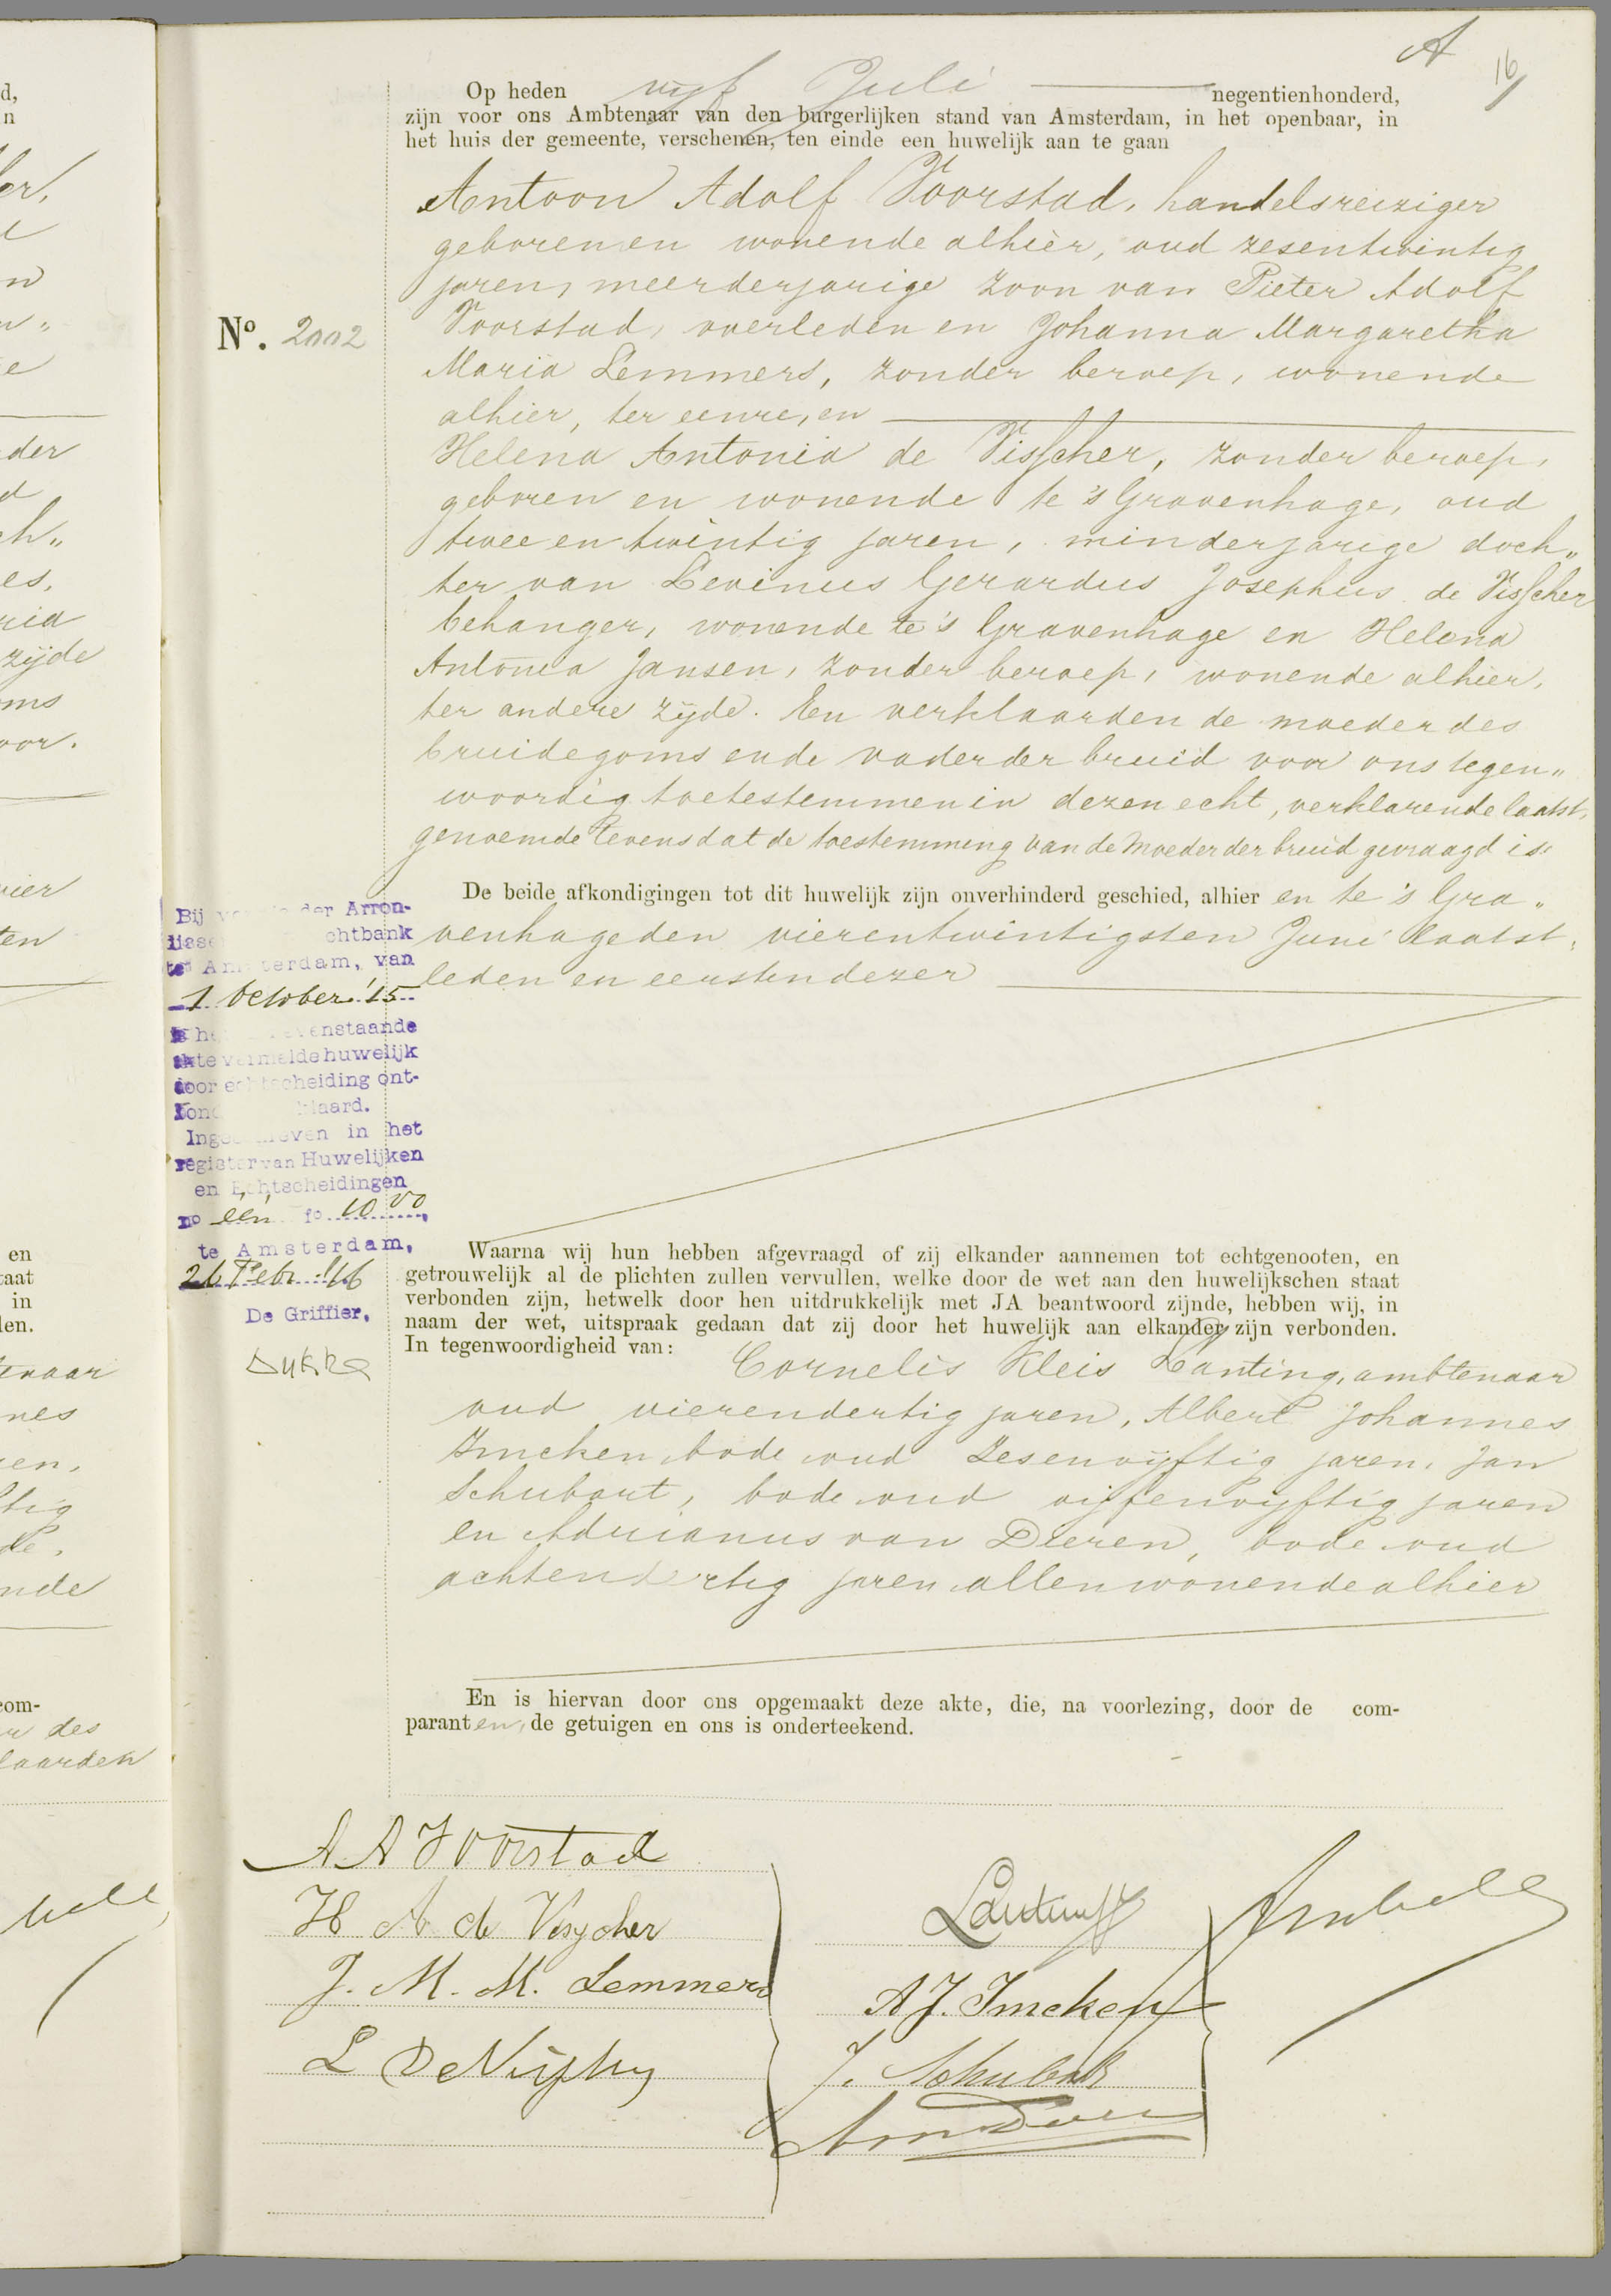 A
16
Op heden vijf Juli negentienhonderd,
zijn voor ons Ambtenaar van den burgerlijken stand van Amsterdam, in het openbaar, in
het huis der gemeente, verschenen, ten einde een huwelijk aan te gaan
Antoon Adolf Voorstad, handelsreiziger
geboren en wonende alhier, oud zesentwintig
jaren, meerderjarige zoon van Pieter Adolf
Voorstad, overleden en Johanna Margaretha
Maria Lemmers, zonder beroep, wonende
alhier, ter eenre, en
Nº. 2002
Helena Antonia de Visscher, zonder beroep,
geboren en wonende te 's Gravenhage, oud
twee en twintig jaren, minderjarige doch„
ter van Levinus Gerardus Josephus de Visscher
behanger, wonende te 's Gravenhage en Helena
Antonia Jansen, zonder beroep, wonende alhier,
ter andere zijde. En verklaarden de moeder des
bruidegoms en de vader der bruid voor ons tegen„
woordig toetestemmen in dezen echt, verklarende laatst„
genoemde tevens dat de toestemming van de moeder der bruid gevraagd is.
De beide afkondigingen tot dit huwelijk zijn onverhinderd geschied, alhier en te 's Gra„
venhage den vierentwintigsten Juni laatst„
leden en eersten dezer
Bij der Arron-
chtbank
te Amsterdam, van
1 October '15
enstaande
akte vermelde huwelijk
door echtscheiding ont-
klaard.
Ingeschreven in het
register van Huwelijken
en Echtscheidingen
no één fo 10 vo,
te Amsterdam,
26 Febr. '16
De Griffier,
Waarna wij hun hebben afgevraagd of zij elkander aannemen tot echtgenooten, en
getrouwelijk al de plichten zullen vervullen, welke door de wet aan den huwelijkschen staat
verbonden zijn, hetwelk door hen uitdrukkelijk met JA beantwoord zijnde, hebben wij, in
naam der wet, uitspraak gedaan dat zij door het huwelijk aan elkander zijn verbonden.
In tegenwoordigheid van: Cornelis Kleis Lanting, ambtenaar
oud vierendertig jaren, Albert Johannes
Imcken, bode oud zesenvijftig jaren, Jan
Schubart, bode oud vijfenvijftig jaren
en Adrianus van Dieren, bode oud
achtendertig jaren allen wonende alhier
En is hiervan door ons opgemaakt deze akte, die, na voorlezing, door de com-
paranten, de getuigen en ons is onderteekend.
A A Voorstad
H A de Visscher
J. M. M. Lemmers
L De Visscher
Lanting
A J. Imcken
J. Schubart
d,
n
der
d
ch„
es,
ria
zijde
oms
oor.
vier
ten
en
taat
in
len.
tenaar
nes
en,
tig
nde
com-
des
laarden